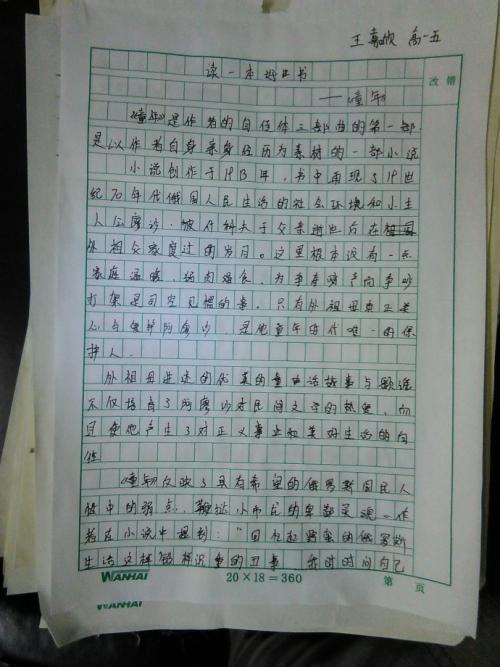 王嘉欣 高一五
读一本好书
改错
——《童年》
《童年》是作者的自传体三部曲的第一部
是以作者自身亲身经历为素材的一部小说
小说创作于1913年，书中再现了19世
纪70年代俄国人民生活的社会环境和小主
人公阿廖沙·彼什科夫于父亲逝世后在祖母
外祖父家度过的岁月。这里根本没有一点
家庭温暖，弱肉强食，为争夺财产而争吵
打架是司空见惯的事。只有外祖母真正关
心与爱护阿廖沙，是他童年时代唯一的保
护人．
外祖母讲述的优美的童话故事与歌谣
不仅培育了阿廖沙对民间文学的热爱，而
且使他产生了对正义事业和美好生活的向
往
《童年》反映了具有希望的俄罗斯国民人
性中的弱点，鞭挞小市民的卑鄙灵魂。作
者在小说中提到：“回忆起野蛮的俄罗斯
生活这样铅样沉重的丑事 我时时问自己
WANHAI
20×18=360
第 页
WANHAI